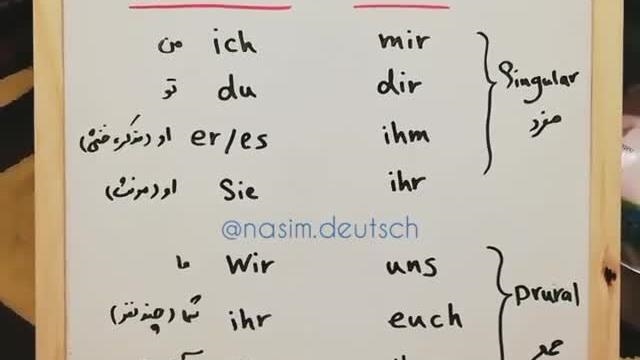 من ich mir
تو du dir
او (مذکر، خنثی) er/es ihm
او (مونث) Sie ihr
Singular
مفرد
@nasim.deutsch
ما Wir uns
شما (چند نفر) ihr euch
prural
جمع